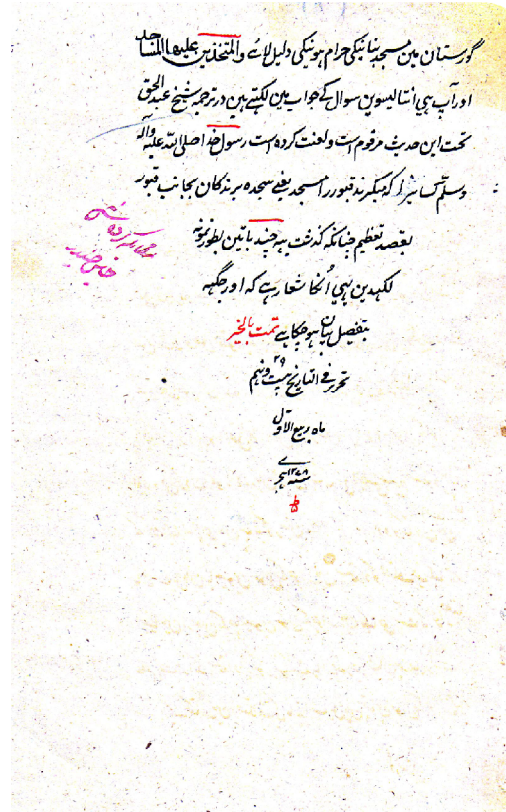 گورستان مین مسجد بنانیکی حرام ہونیکی دلیل لائے والمتخذین علیها المساجد
اور آپ ہی انتالیسوین سوال کے جواب مین لکہتے ہین در ترجمہ شیخ عبد الحق
تحت این حدیث مرقوم است و لعنت کردہ است رسول خدا صلی اللہ علیہ وآلہ
وسلم کسانیرا کہ میگرند قبور را مسجد یعنے سجدہ برندکان بجانب قبور
بقصد تعظیم چنانکہ گذشت یہ چند باتین بطور نمونہ
لکہدین یہی اُنکا شعار ہے کہ اور جگہہ
بتفصیل بیان ہو چکا ہے تمت بالخیر
تحریر فی التاریخ بیست ونہم ۲۹
ماہ ربیع الاول
سنہ ۱۲۷۸ ہجری